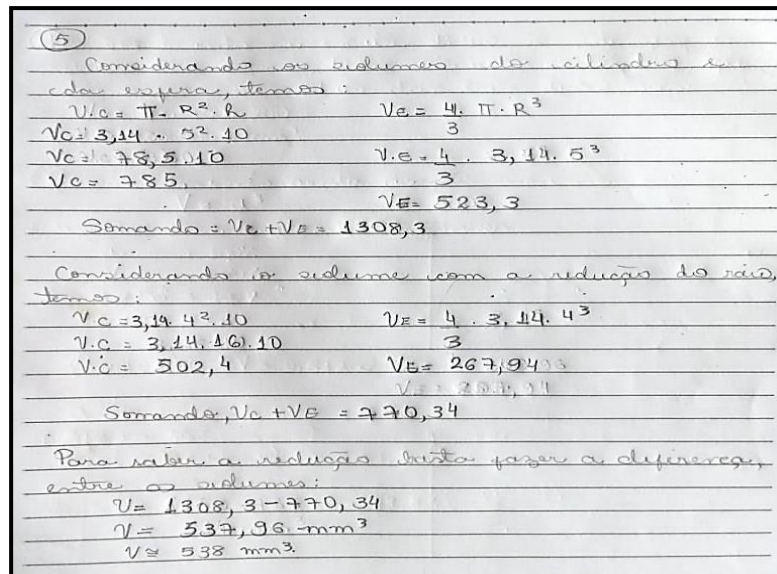 5
Considerando os volumes do cilindro e
da esfera, temos:
V.c = π . R² . h    Ve = 4 . π . R³ / 3
Vc = 3,14 . 5² . 10
Vc = 78,5 . 10    V.e = 4 . 3,14 . 5³ / 3
Vc = 785
VE = 523,3
Somando = Vc + VE = 1308,3
Considerando o volume com a redução do raio,
temos:
V.C = 3,14 . 4² . 10    VE = 4 . 3,14 . 4³ / 3
V.C = 3,14 . 16 . 10
V.C = 502,4    VE = 267,94
Somando, Vc + VE = 770,34
Para saber a redução basta fazer a diferença,
entre os volumes:
V = 1308,3 - 770,34
V = 537,96 mm³
V ≅ 538 mm³.